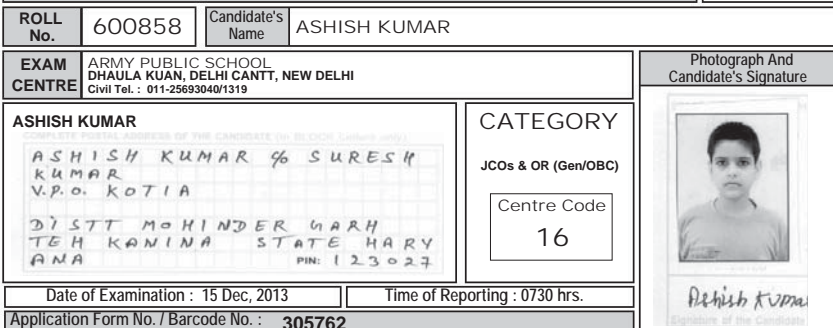 ROLL No. 600858 Candidate's Name ASHISH KUMAR
EXAM CENTRE ARMY PUBLIC SCHOOL
DHAULA KUAN, DELHI CANTT, NEW DELHI
Civil Tel. : 011-25693040/1319
Photograph And
Candidate's Signature
ASHISH KUMAR
COMPLETE POSTAL ADDRESS OF THE CANDIDATE (In BLOCK Letters only)
ASHISH KUMAR C/o SURESH
KUMAR
V.P.O. KOTIA
DISTT MOHINDER GARH
TEH KANINA STATE HARY
ANA PIN: 123027
CATEGORY
JCOs & OR (Gen/OBC)
Centre Code
16
Ashish Kumar
Signature of the Candidate
Date of Examination : 15 Dec, 2013 Time of Reporting : 0730 hrs.
Application Form No. / Barcode No. : 305762